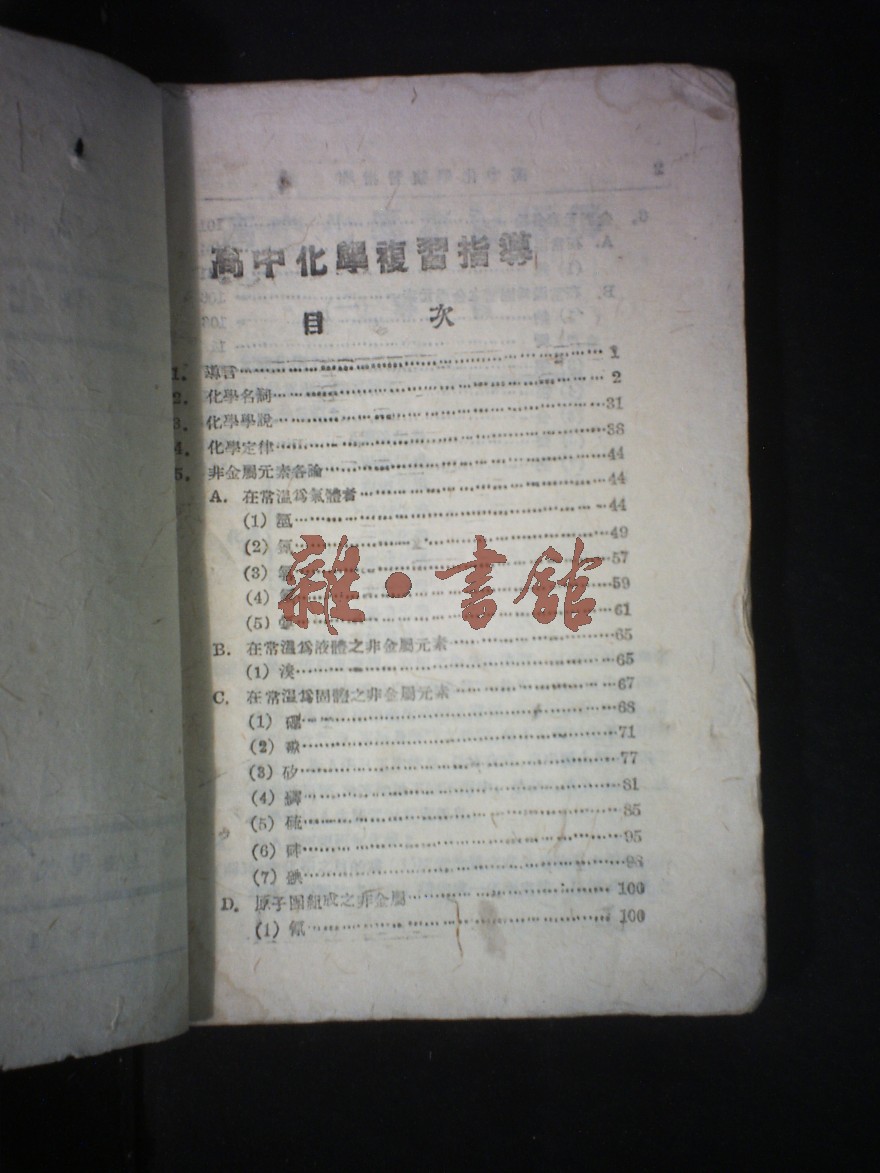 高中化學複習指導
目 次
1. 導言 1
2. 化學名詞 2
3. 化學學說 31
4. 化學定律 38
5. 非金屬元素各論 44
A. 在常溫爲氣體者 44
(1) 氫 44
(2) 49
(3) 57
(4) 59
(5) 61
雜·書館
B. 在常溫爲液體之非金屬元素 65
(1) 溴 65
C. 在常溫爲固體之非金屬元素 67
(1) 硼 68
(2) 碳 71
(3) 矽 77
(4) 磷 81
(5) 硫 85
(6) 砷 95
(7) 碘 98
D. 原子團組成之非金屬 100
(1) 氰 100